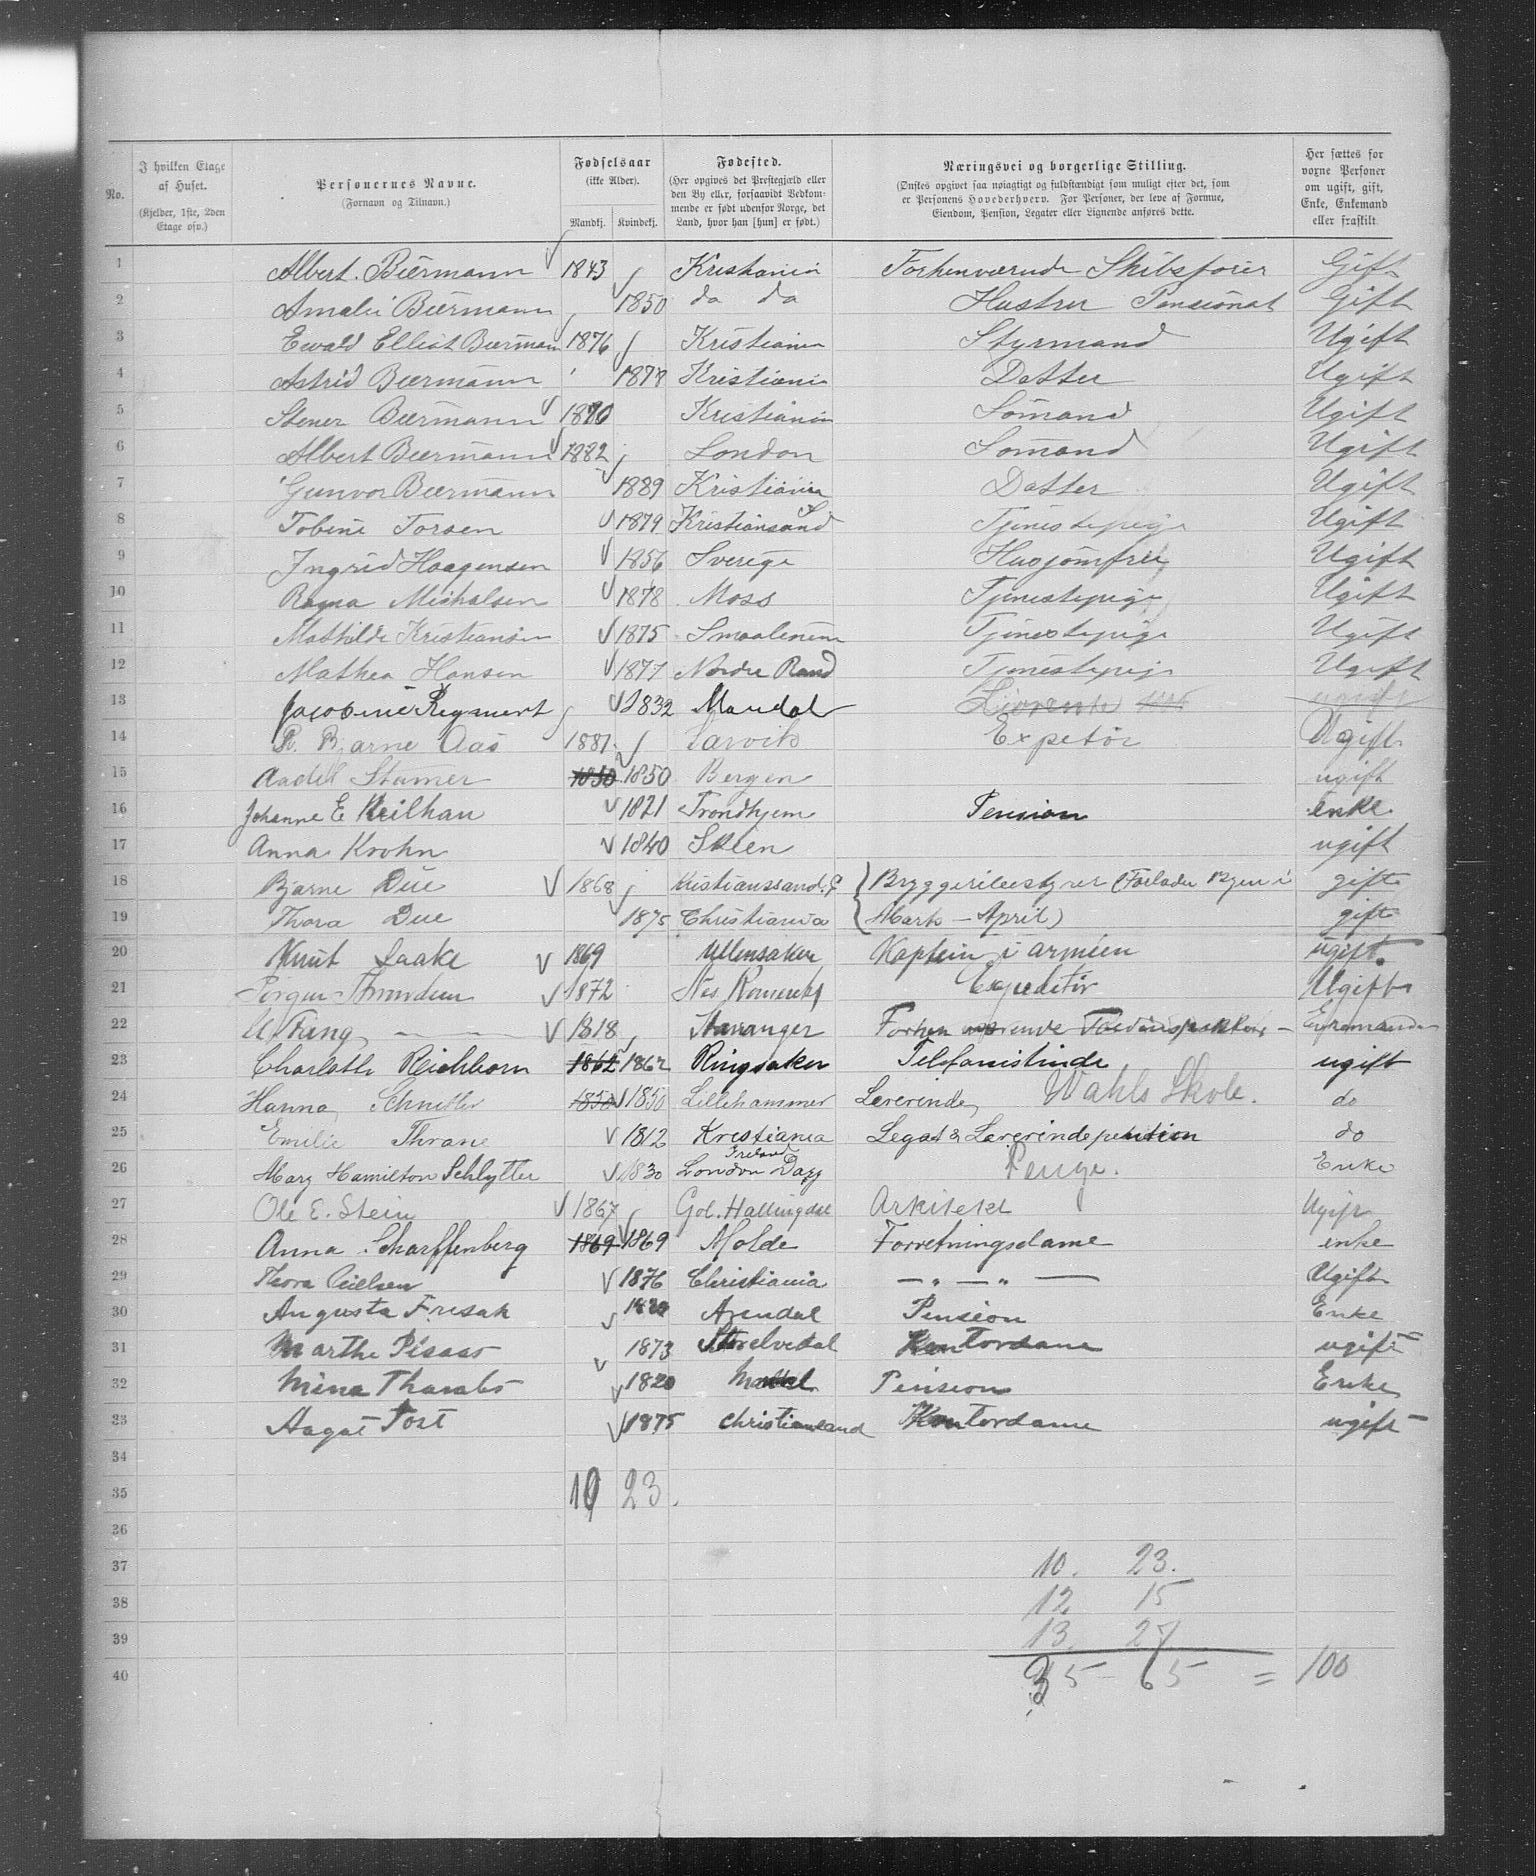 No.
I hvilken Etage af Huset.
(Kjelder, 1ste, 2den Etage osv.)
Personernes Navne.
(Fornavn og Tilnavn.)
Fødselsaar
(ikke Alder).
Mandkj. Kvindekj.
Fødested.
(Her opgives det Prestegjæld eller den By eller, forsaavidt Vedkommende er født udenfor Norge, det Land, hvor han [hun] er født.)
Næringsvei og borgerlige Stilling.
(Ønskes opgivet saa nøiagtigt og fuldstændigt som muligt efter det, som er Personens Hovederhverv. For Personer, der leve af Formue, Eiendom, Pension, Legater eller Lignende anføres dette.
Her sættes for voxne Personer om ugift, gift, Enke, Enkemand eller fraskilt
1 Albert Biermann 1843 Kristiania Forhenværende Skibsfører Gift
2 Amalie Biermann 1850 do do Hustru Pensionat Gift
3 Ewald Elliot Biermann 1876 Kristiania Styrmand Ugift
4 Astrid Biermann 1878 Kristiania Datter Ugift
5 Stener Biermann 1870 Kristiania Sømand Ugift
6 Albert Biermann 1882 London Sømand Ugift
7 Gunvor Biermann 1889 Kristiania Datter Ugift
8 Tobine Torsen 1879 Kristiansand S Tjenestepige Ugift
9 Ingrid Haagensen 1856 Sverige Husjomfru Ugift
10 Ragna Mikalsen 1878 Moss Tjenestepige Ugift
11 Mathilde Kristiansen 1875 Smaalenene Tjenestepige Ugift
12 Mathea Hansen 1877 Nordre Rand Tjenestepige Ugift
13 Jacobine Reymert 1832 Mandal Livrente ugift
14 R. Bjarne Aas 1881 Larvik Expetør Ugift
15 Stamer 1850 1850 Bergen ugift
16 Johanne E Keilhau 1821 Trondhjem Pension enke
17 Anna Krohn 1840 Skien ugift
18 Bjarne Due 1868 Kristianssand. Bryggeribestyrer (Forlader Byen i gift
19 Thora Due 1875 Christiania Marts - April) gift
20 Knut Laake 1869 Ullensaker Kaptein i armeen ugift
21 Jørgen Throndsen 1872 Nes Romerike Expeditør Ugift
22 1818 Stavanger Forhen værende Enkemand
23 Charlotte Reichborn 1862 1862 Ringsaker Telefonistinde ugift
24 Hanna Schnitler 1850 1850 Lillehammer Lererinde Wahls Skole. do
25 Emilie Thrane 1812 Kristiania Legat & Lærerindepension do
26 Mary Hamilton Schlytter 1830 London Penge. Enke
27 Ole E. Stein 1867 Gol. Hallingdal Arkitekt Ugift
28 Anna Scharffenberg 1869 1869 Molde Forretningsdame enke
29 Thora Nielsen 1876 Christiania — „ — „ — Ugift
30 Augusta Frisak Arendal Pension Enke
31 Marthe 1873 Storelvedal Kontordame ugift
32 Mina 1820 Pension Enke
33 Aagot Tost 1875 Christiansand Kontordame ugift
34
35 10 23.
36
37 10. 23.
38 12 15
39 13. 27
40 35 - 65 = 100